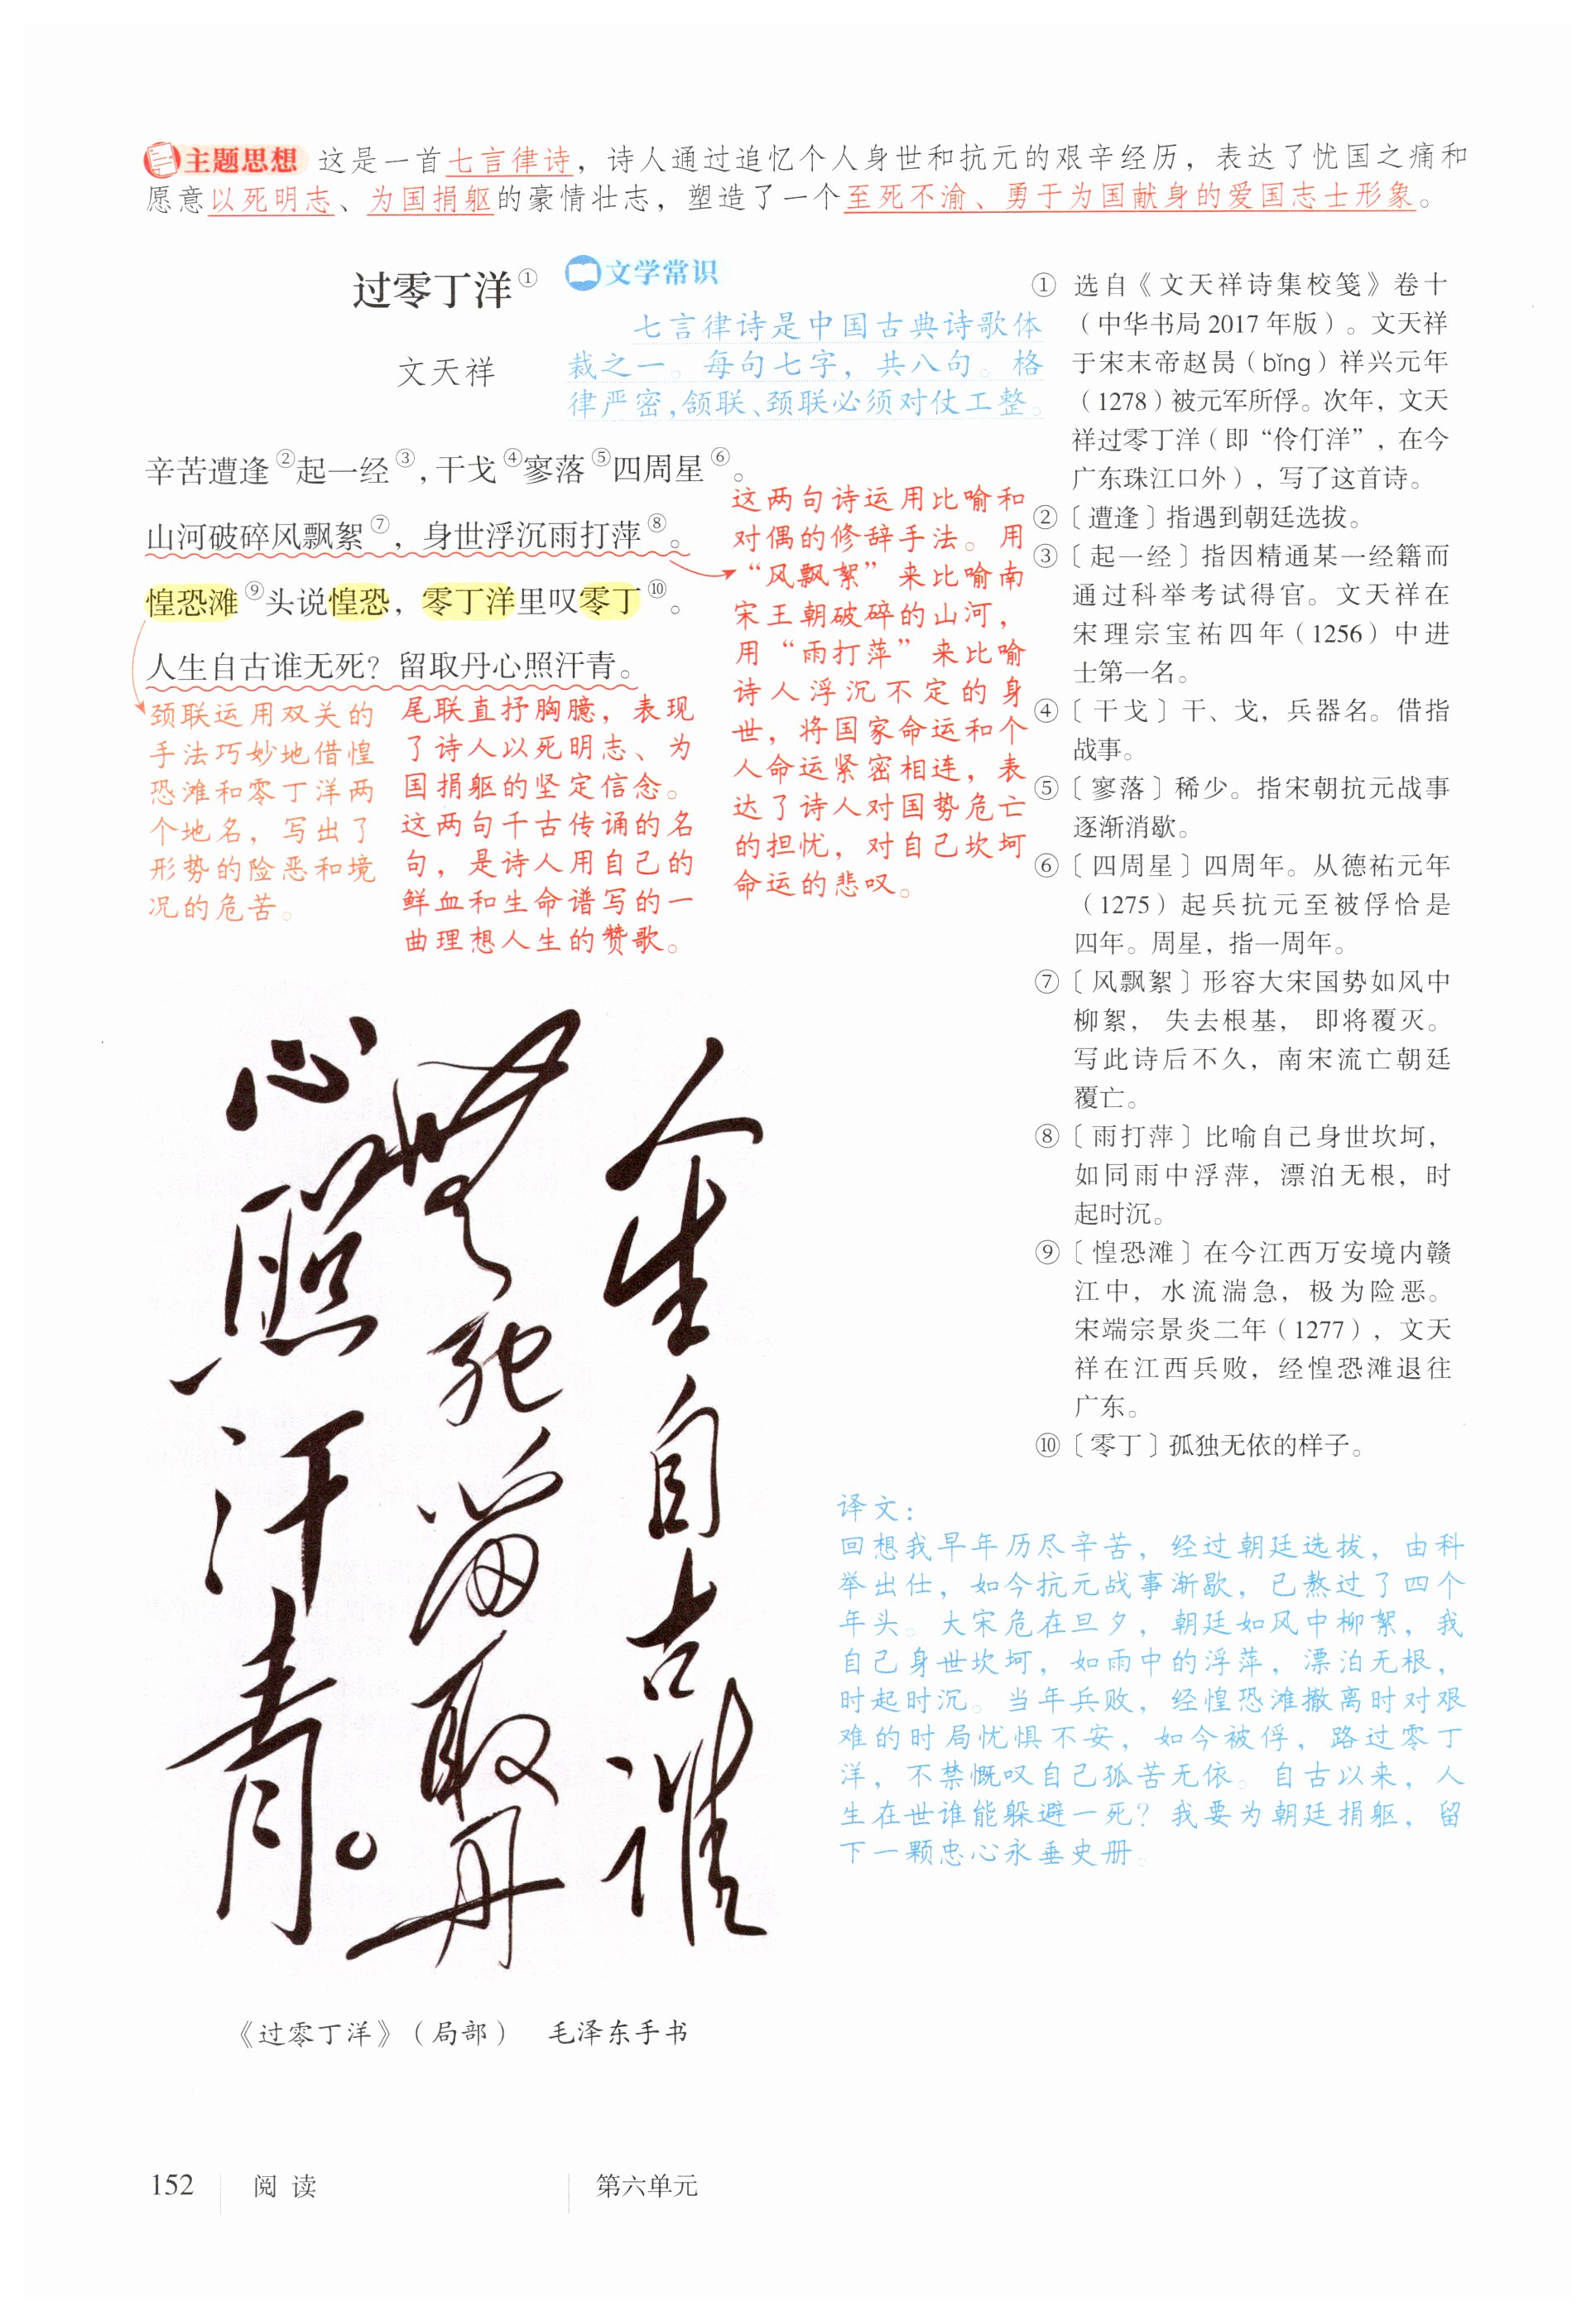 主题思想 这是一首七言律诗，诗人通过追忆个人身世和抗元的艰辛经历，表达了忧国之痛和
愿意以死明志、为国捐躯的豪情壮志，塑造了一个至死不渝、勇于为国献身的爱国志士形象。
过零丁洋①
文天祥
文学常识
七言律诗是中国古典诗歌体
裁之一。每句七字，共八句。格
律严密，颔联、颈联必须对仗工整。
辛苦遭逢②起一经③，干戈④寥落⑤四周星⑥。
山河破碎风飘絮⑦，身世浮沉雨打萍⑧。
惶恐滩⑨头说惶恐，零丁洋里叹零丁⑩。
人生自古谁无死？留取丹心照汗青。
颈联运用双关的
手法巧妙地借惶
恐滩和零丁洋两
个地名，写出了
形势的险恶和境
况的危苦。
尾联直抒胸臆，表现
了诗人以死明志、为
国捐躯的坚定信念。
这两句千古传诵的名
句，是诗人用自己的
鲜血和生命谱写的一
曲理想人生的赞歌。
这两句诗运用比喻和
对偶的修辞手法。用
“风飘絮”来比喻南
宋王朝破碎的山河，
用“雨打萍”来比喻
诗人浮沉不定的身
世，将国家命运和个
人命运紧密相连，表
达了诗人对国势危亡
的担忧，对自己坎坷
命运的悲叹。
① 选自《文天祥诗集校笺》卷十
（中华书局2017年版）。文天祥
于宋末帝赵昺（bǐng）祥兴元年
（1278）被元军所俘。次年，文天
祥过零丁洋（即“伶仃洋”，在今
广东珠江口外），写了这首诗。
②〔遭逢〕指遇到朝廷选拔。
③〔起一经〕指因精通某一经籍而
通过科举考试得官。文天祥在
宋理宗宝祐四年（1256）中进
士第一名。
④〔干戈〕干、戈，兵器名。借指
战事。
⑤〔寥落〕稀少。指宋朝抗元战事
逐渐消歇。
⑥〔四周星〕四周年。从德祐元年
（1275）起兵抗元至被俘恰是
四年。周星，指一周年。
⑦〔风飘絮〕形容大宋国势如风中
柳絮，失去根基，即将覆灭。
写此诗后不久，南宋流亡朝廷
覆亡。
⑧〔雨打萍〕比喻自己身世坎坷，
如同雨中浮萍，漂泊无根，时
起时沉。
⑨〔惶恐滩〕在今江西万安境内赣
江中，水流湍急，极为险恶。
宋端宗景炎二年（1277），文天
祥在江西兵败，经惶恐滩退往
广东。
⑩〔零丁〕孤独无依的样子。
人生自古谁
無死留取丹
心照汗青。
《过零丁洋》（局部） 毛泽东手书
译文：
回想我早年历尽辛苦，经过朝廷选拔，由科
举出仕，如今抗元战事渐歇，已熬过了四个
年头。大宋危在旦夕，朝廷如风中柳絮，我
自己身世坎坷，如雨中的浮萍，漂泊无根，
时起时沉。当年兵败，经惶恐滩撤离时对艰
难的时局忧惧不安，如今被俘，路过零丁
洋，不禁慨叹自己孤苦无依。自古以来，人
生在世谁能躲避一死？我要为朝廷捐躯，留
下一颗忠心永垂史册。
152 阅读 第六单元